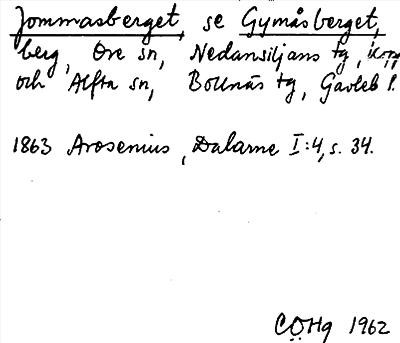 Jommasberget, se Gymåsberget,
berg, Ore sn, Nedansiljans tg, Kopp.
och Alfta sn, Bollnäs tg, Gävleb l.
1863 Arosenius, Dalarne I:4, s. 34.
CÖHg 1962